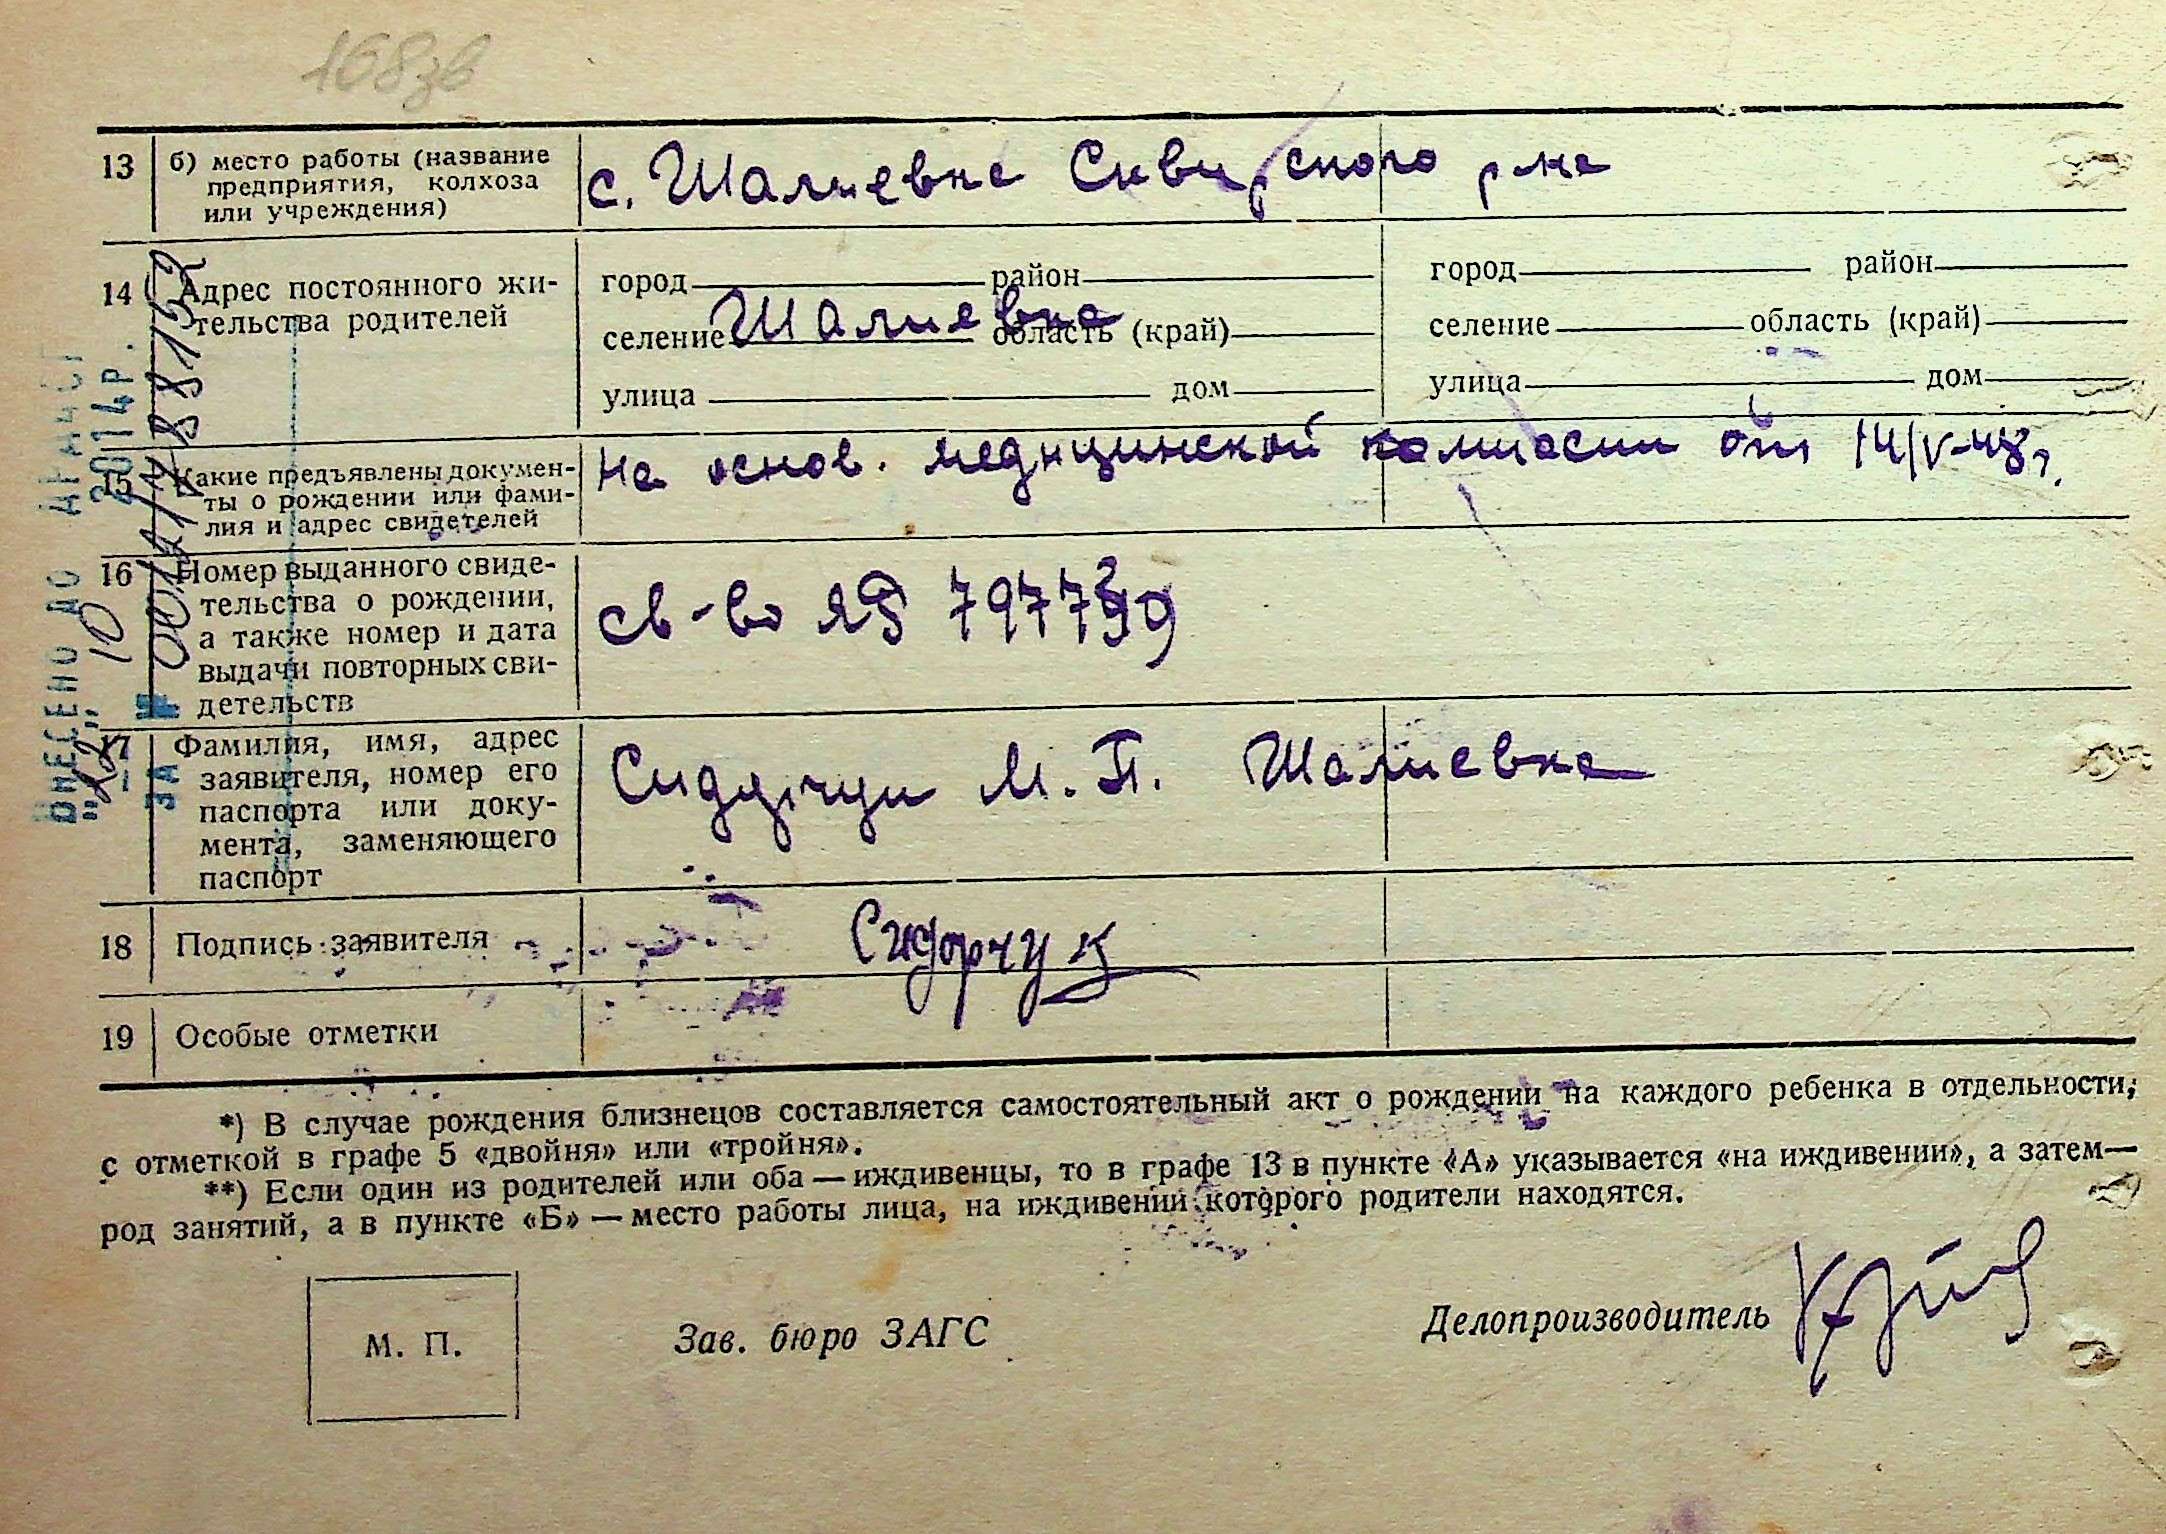 168зв
13 б) место работы (название
предприятия, колхоза
или учреждения)
с. Шалиевка Сквирского р-на
14 Адрес постоянного жи-
тельства родителей
город район
селение Шалиевка область (край)
улица дом
город район
селение область (край)
улица дом
15 Какие предъявлены докумен-
ты о рождении или фами-
лия и адрес свидетелей
На основ. медицинской комиссии от 14/V-48г.
16 Номер выданного свиде-
тельства о рождении,
а также номер и дата
выдачи повторных сви-
детельств
св-во ЯБ
17 Фамилия, имя, адрес
заявителя, номер его
паспорта или доку-
мента, заменяющего
паспорт
Сидорчук М. П. Шалиевка
18 Подпись заявителя
Сидорчук
19 Особые отметки
*) В случае рождения близнецов составляется самостоятельный акт о рождении на каждого ребенка в отдельности,
с отметкой в графе 5 «двойня» или «тройня».
**) Если один из родителей или оба — иждивенцы, то в графе 13 в пункте «А» указывается «на иждивении», а затем —
род занятий, а в пункте «Б» — место работы лица, на иждивении которого родители находятся.
М. П.
Зав. бюро ЗАГС
Делопроизводитель
ВНЕСЕНО ДО ДРАЦСГ
"22" 10 2014р.
ЗА №